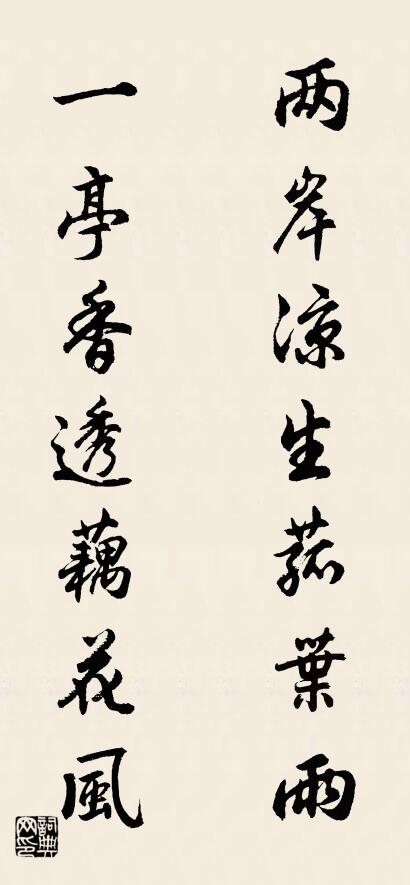 两岸凉生菰葉雨
一亭香透藕花風
詞典网印